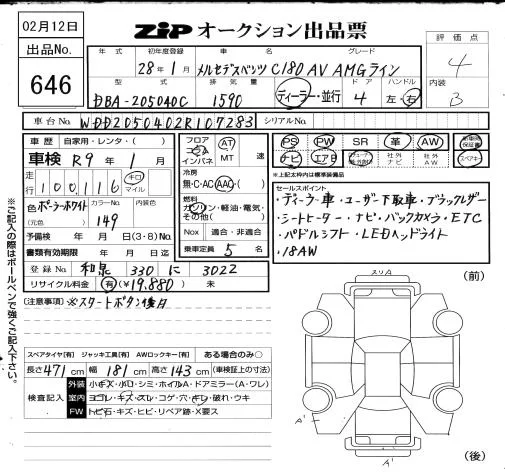 02月12日
ZIP オークション出品票
出品No.
646
評価点
4
内装
B
年式 初年度登録 車名 グレード
28年1月 メルセデスベンツ C180 AV AMGライン
型式 排気量 ドア ハンドル
DBA-205040C 1590 ディーラー・並行 4 左・右
車台No. WDD2050402R107283 シリアルNo.
車歴 自家用・レンタ・( )
車検 R9年1月
走行 100,116 キロ マイル
色 ポーラーホワイト カラーNo. 149 内装色
(元色)
予備検 年 月 日(3・8)No.
書類有効期限 年 月 日迄
登録No. 和泉 330 に 3022
リサイクル料金 有(¥19,880) 未
フロア コラム インパネ AT MT 速
冷房
無・C・AC・AAC・( )
燃料
ガソリン・軽油・電気・
その他( )
Nox 適合・非適合
乗車定員 5 名
PS PW SR 革 AW 新車時保証書
ナビ エアB 社外ナビ 社外AW スペアキー
※上記太枠内は標準装備品
セールスポイント
・ディーラー車・ユーザー下取車・ブラックレザー
・シートヒーター・ナビ・バックカメラ・ETC
・パドルシフト・LEDヘッドライト
・18AW
(注意事項) ※スタートボタン後日
※ご記入の際はボールペンで強くご記入下さい。
スペアタイヤ[有] ジャッキ工具[有] AWロックキー[有] ある場合のみ○
長さ 471 cm 幅 181 cm 高さ 143 cm (車検証上の寸法)
検査記入
外装 小キズ・小凹・シミ・ホイルA・ドアミラー(A・ワレ)
室内 ヨゴレ・キズ・スレ・コゲ・穴・キレ・破れ・ウキ
FW トビ石・キズ・ヒビ・リペア跡・X要ス
スリA
(前)
A'
A'
(後)